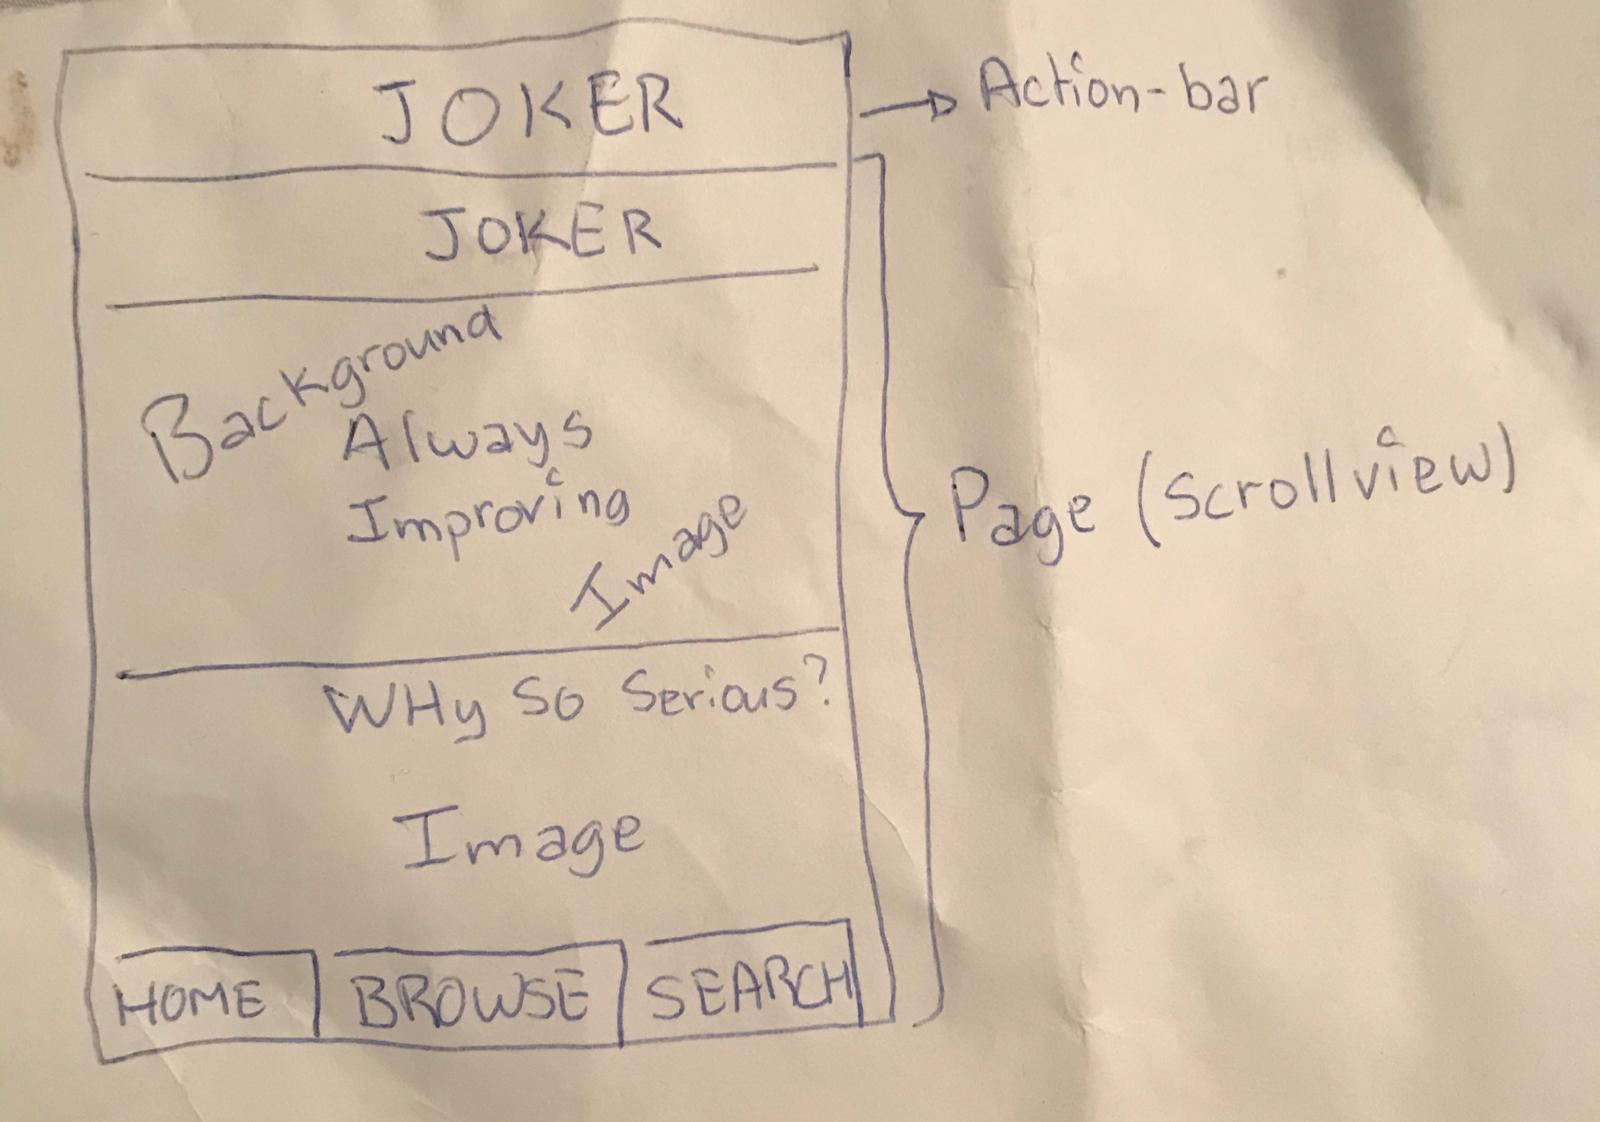 JOKER
Action-bar
JOKER
Background
Always
Improving
Image
Page (Scrollview)
WHy So Serious?
Image
HOME
BROWSE
SEARCH